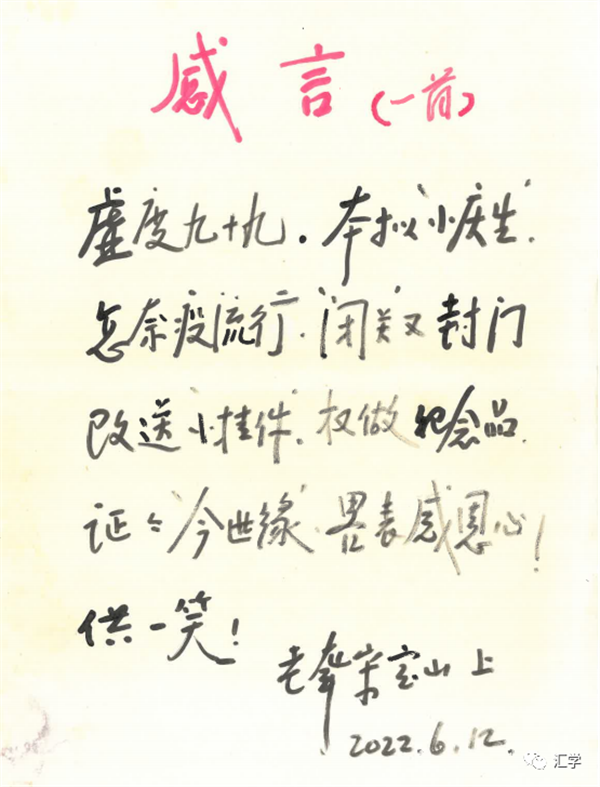 感言(一首)
虚度九十九.本拟"小庆生".
怎奈疫流行."闭关"又封门
改送"小挂件".权做纪念品.
证 "今世缘".畧表感恩心!
供一笑!
老 宋宝山上
2022.6.12.
汇学